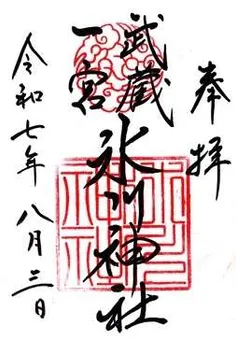 奉拝
武蔵
一宮
氷川神社
令和七年八月三日